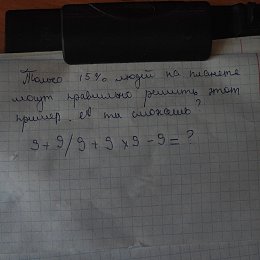 Только 15% людей на планете
могут правильно решить этот
пример. ей ты сможешь?
9+9/9+9×9-9=?